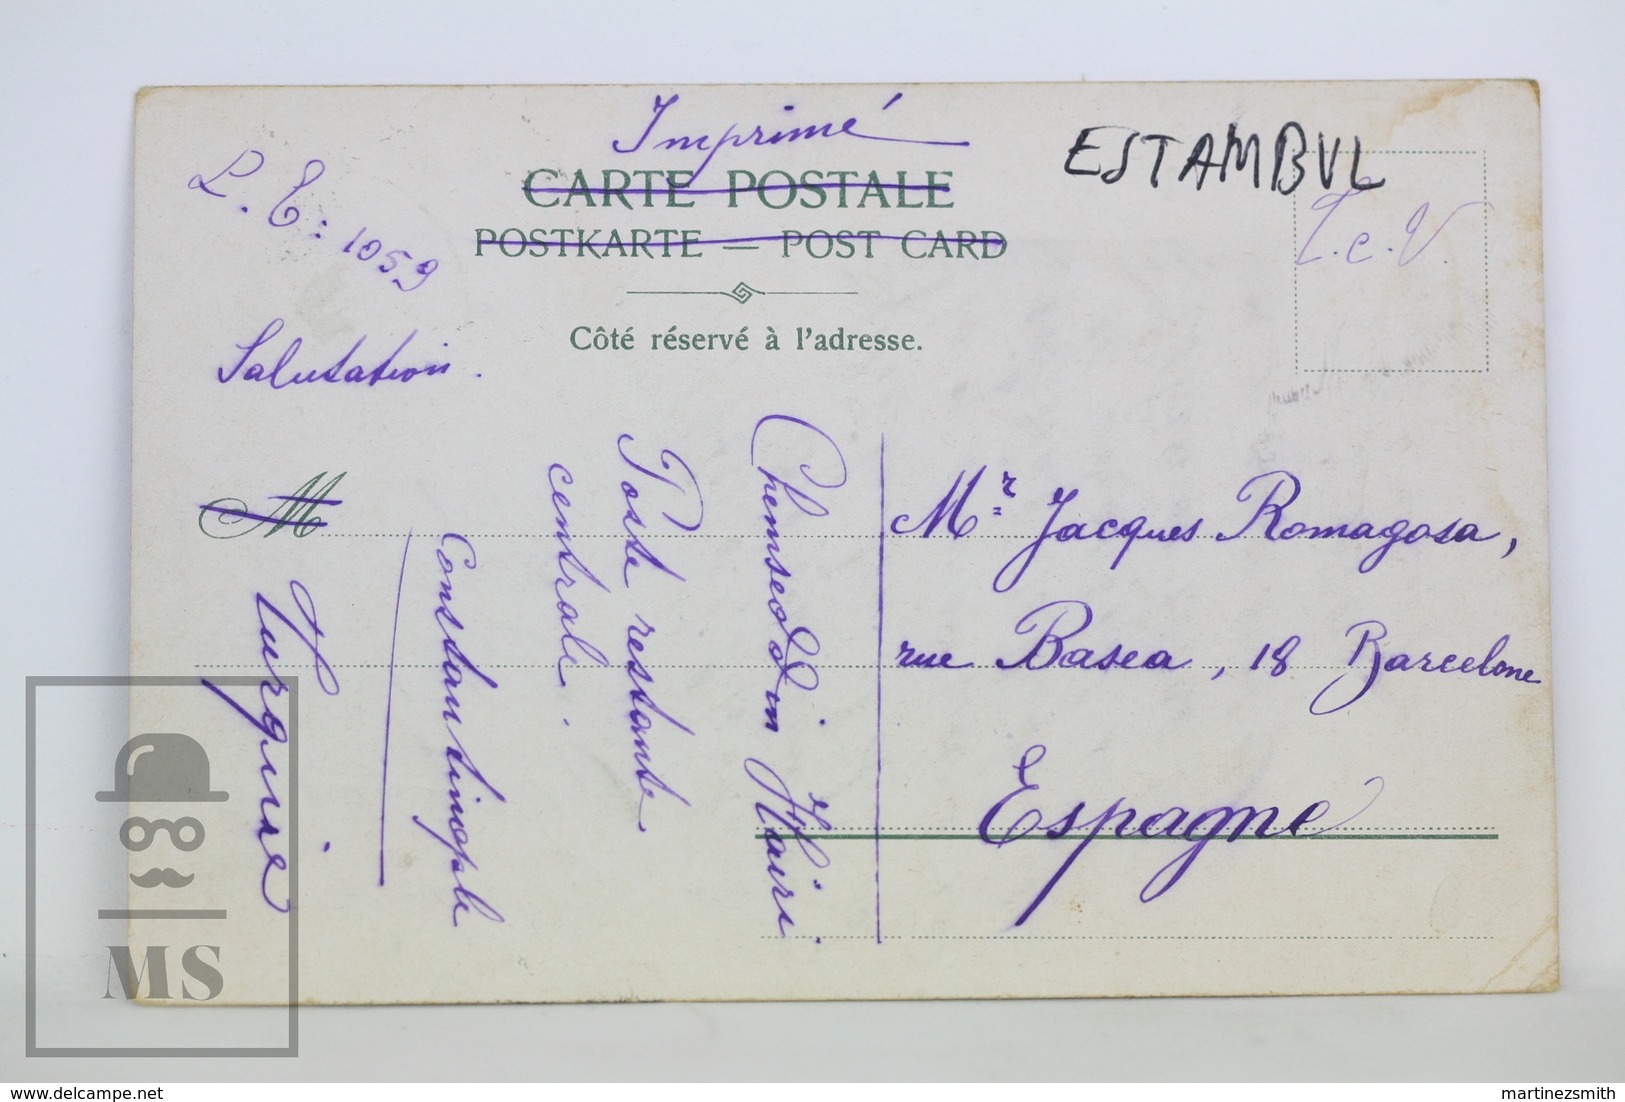 Imprimé
ESTAMBUL
L. T: 1059
CARTE POSTALE
POSTKARTE — POST CARD
T.c.V.
Côté réservé à l'adresse.
Salutation.
M
Mr. Jacques Romagosa,
rue Basea, 18 Barcelone
Espagne
Chemseddin Haïri.
Poste restante
centrale.
Constantinople
Turquie
MS
delcampe.net
martinezsmith